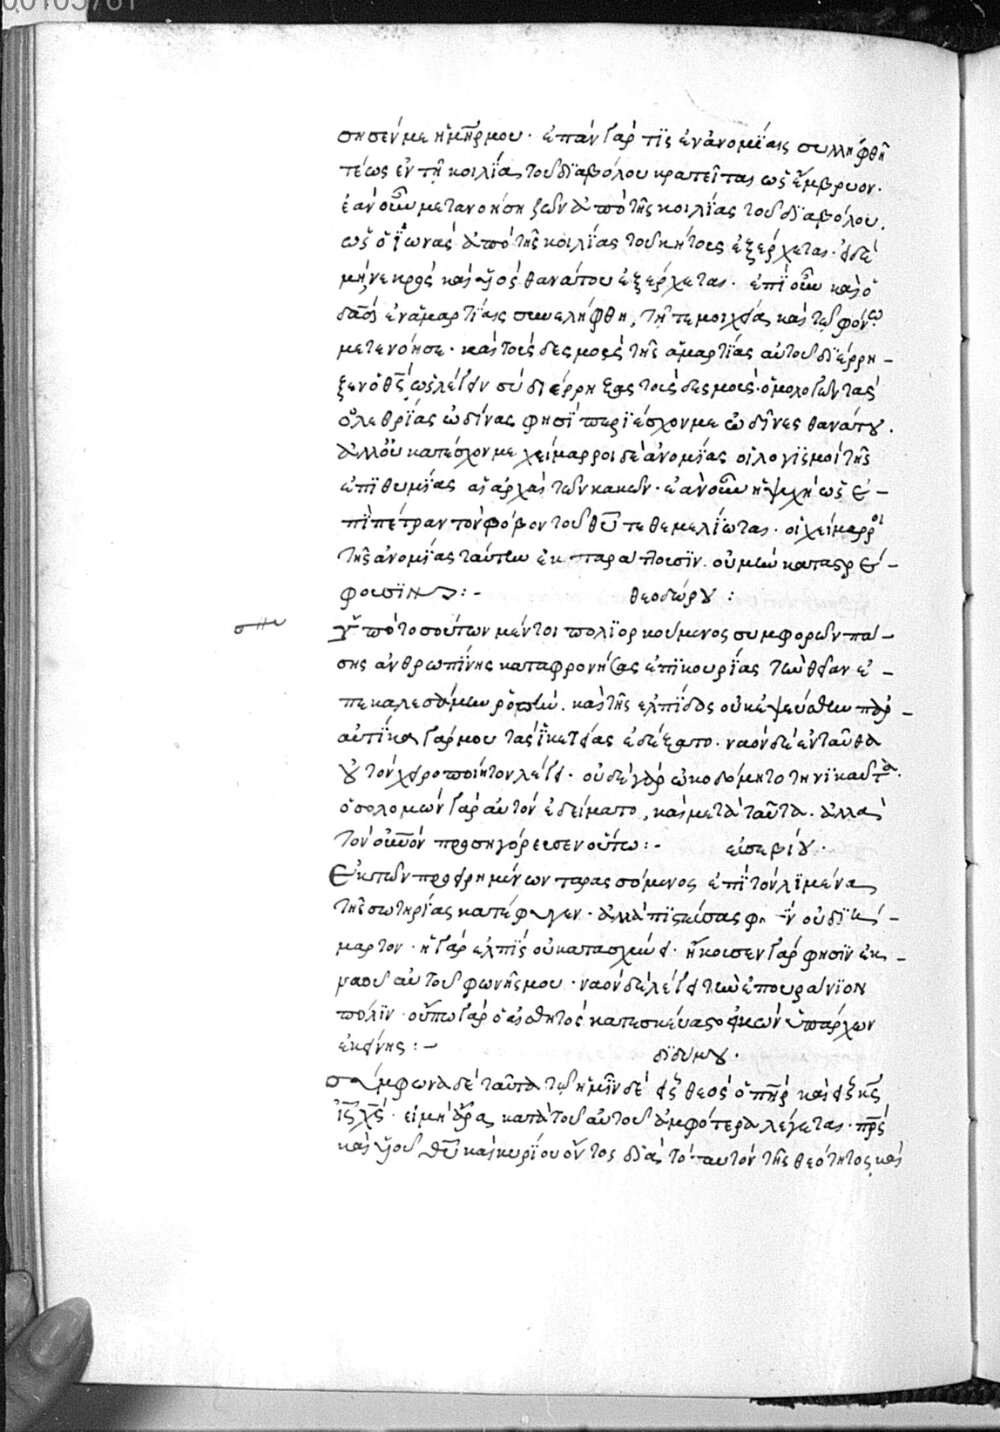 00105761
σησέν με ἡ μηρ μου· ἐπὰν γάρ τις ἐν ἀνομίαις συλληφθῆ
τέως ἐν τῆ κοιλία τοῦ διαβόλου κρατεῖται ὡς ἔμβρυον·
ἐὰν οὖν μετανοήση ζῶν ἀπὸ τῆς κοιλίας τοῦ διαβόλου.
ὡς ὁ ἰωνᾶς ἀπὸ τῆς κοιλίας τοῦ κήτους ἐξέρχεται· εἰ δὲ
μὴ νεκρὸς καὶ υἱὸς θανάτου ἐξέρχεται· ἐπεὶ οὖν καὶ ὁ
δαδ ἐν ἁμαρτίαις συνελήφθη, τῆ τε μοιχεία καὶ τῶ φόνω
μετενόησε· καὶ τοὺς δεσμοὺς τῆς ἁμαρτίας αὐτοῦ διέρρη-
ξεν ὁ θς ὡς λέγειν σὺ διέρρηξας τοὺς δεσμούς· ὁμολογῶν τὰς
ὀλεθρίας ὠδίνας φησὶ περιέσχον με ὠδῖνες θανάτου.
ἀλλ' οὐ κατέσχον με χείμαρροι δὲ ἀνομίας οἱ λογισμοὶ τῆς
ἐπιθυμίας αἱ ἀρχαὶ τῶν κακῶν· ἐὰν οὖν ἡ ψυχὴ ὡς ἐ-
πὶ πέτραν τὸν φόβον τοῦ θυ τεθεμελίωται· οἱ χείμαρροι
τῆς ἀνομίας ταύτην ἐκ παρα μὴν καταστρέ-
φουσιν:- θεοδώρου:
ὑπὸ τοσούτων μέντοι πολιορκούμενος συμφορῶν πά-
σης ἀνθρωπίνης καταφρονήσας ἐπικουρίας τὴν θείαν ἐ-
πεκαλεσάμην ῥοπήν· καὶ τῆς ἐλπίδος οὐκ ἐψεύσθην παρ-
αυτίκα γάρ μου τὰς ἱκετείας ἐδέξατο· ναὸν δὲ ἐνταῦθα
οὐ τὸν χειροποίητον λέγει· οὐδὲ γὰρ ὠκοδόμητο τηνικαῦτα·
ὁ σολομὼν γὰρ αὐτὸν ἐδείματο, καὶ μετὰ ταῦτα· ἀλλὰ
τὸν οὐνὸν προσηγόρευσεν οὕτω:- εὐσεβίου·
Ἐκ τῶν προειρημένων ταρασσόμενος ἐπὶ τὸν λιμένα
τῆς σωτηρίας κατέφυγεν· ἀλλὰ πιστεύσας
μαρτον· ἡ γὰρ ἐλπὶς οὐ καταισχύνει· ἤκουσεν γάρ φησιν ἐκ
ναοῦ αὐτοῦ φωνῆς μου· ναὸν δὲ λέγει τὴν ἐπουράνιον
πόλιν· οὔπω γὰρ ὁ αἰσθητὸς κατεσκεύαστο εἰκὼν ὑπάρχων
ἐκείνης:- διδύμου·
σύμφωνα δὲ ταῦτα τῶ ἡμῖν δὲ εἷς θεὸς ὁ πηρ καὶ εἷς κς
ις χς· εἰ μὴ ἄρα κατὰ τοῦ αὐτοῦ ἀμφότερα λέγεται· πρς
καὶ υἱοῦ θυ καὶ κυρίου ὄντος διὰ τὸ ταυτὸν τῆς θεότητος καὶ